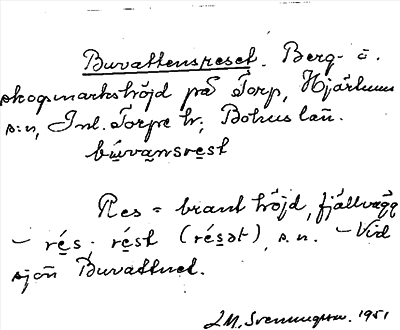 Buvattensreset. Berg- o.
skogsmarkshöjd på Torp, Hjärtums
s:n, Inl. Torpe hr; Bohus län.
bu̱vansre̱st
Res = brant höjd, fjällvägg
– rés, rést (résət), s. n. – Vid
sjön Buvattnet.
1951